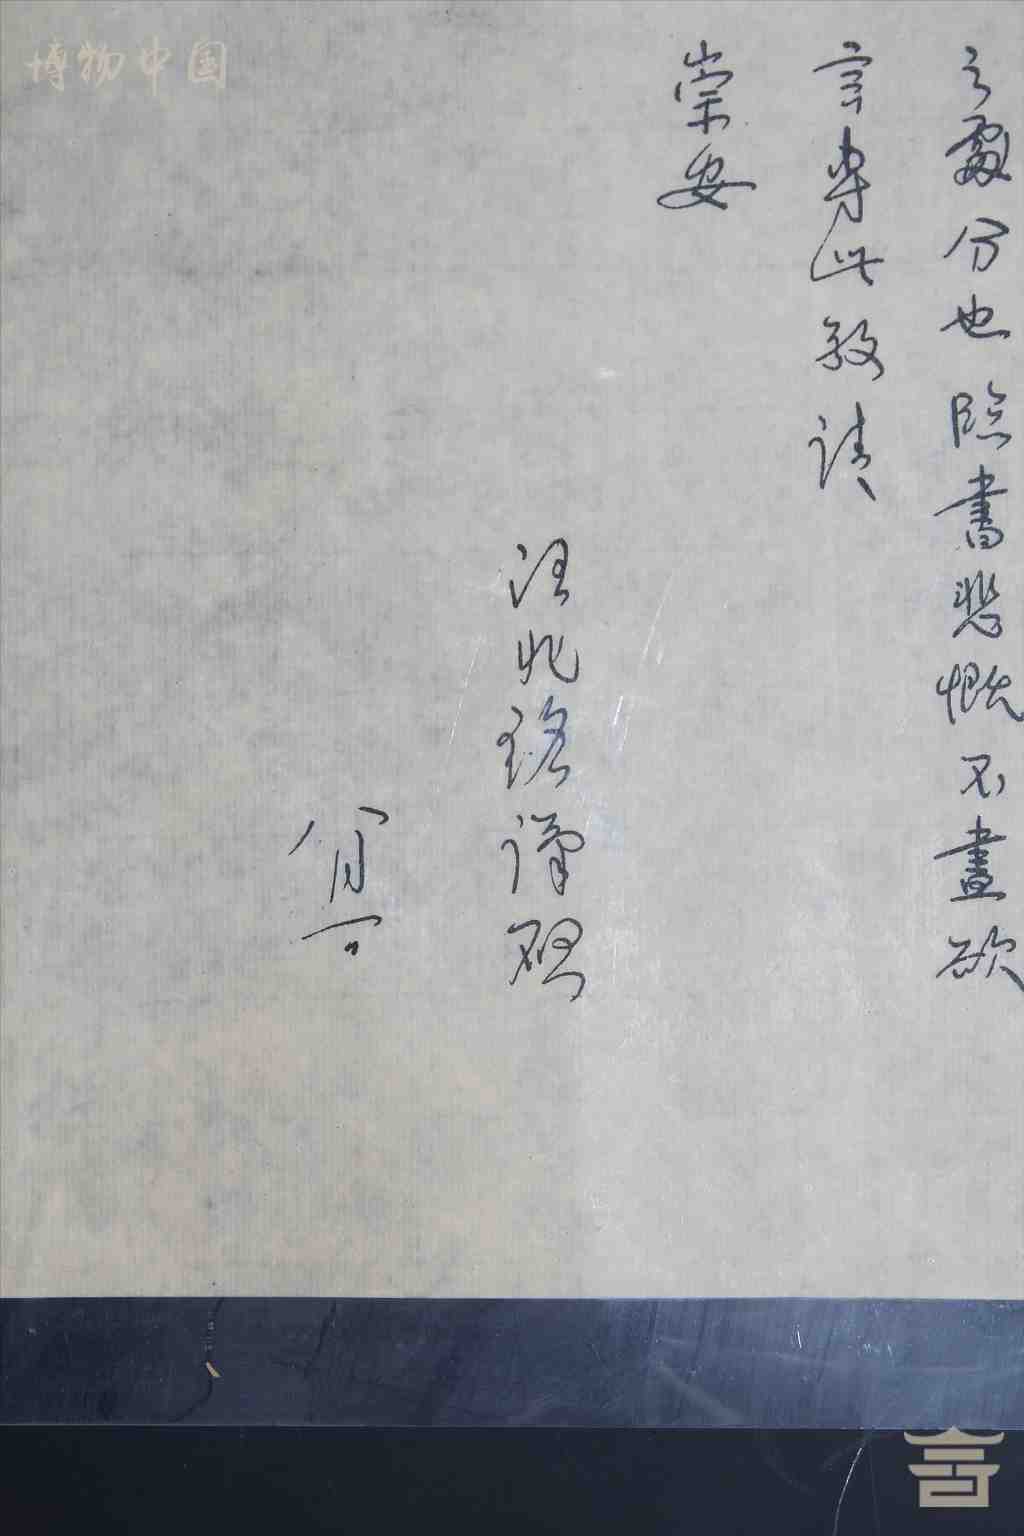 之處分也臨書悲慨不盡欲
言專此敬請
崇安
汪兆銘謹啟
八月一日
博物中国